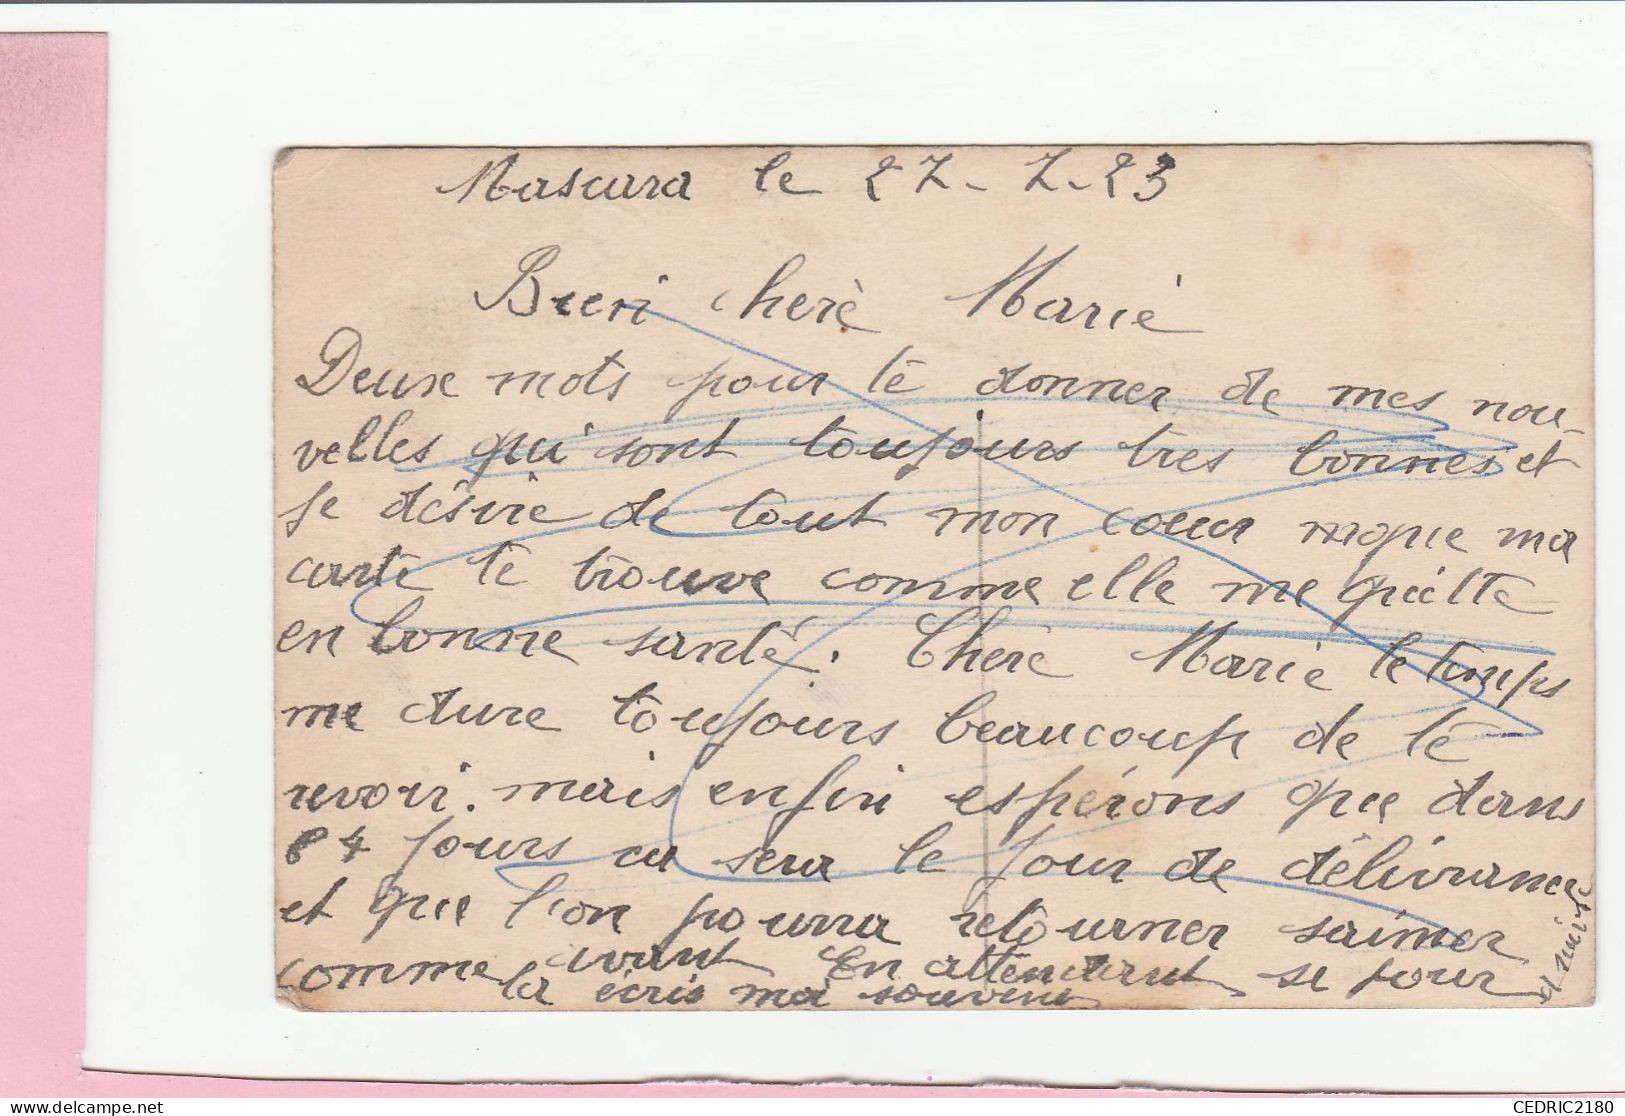 Mascara le 27-7-23
Bien cherè Marié
Deux mots pour tè donner de mes nou-
velles qui sont toujours tres bonnes et
je désire de tout mon cœur que ma
carte te trouve comme elle me quitte
en bonne santé. Chère Marie le temps
me dure toujours beaucoup de te
revoir. mais enfin espérons que dans
84 jours ce sera le jour de délivrance
et que l'on pourra retourner saimer
comme avant En attendant se jour
la écris moi souvent
CEDRIC2180